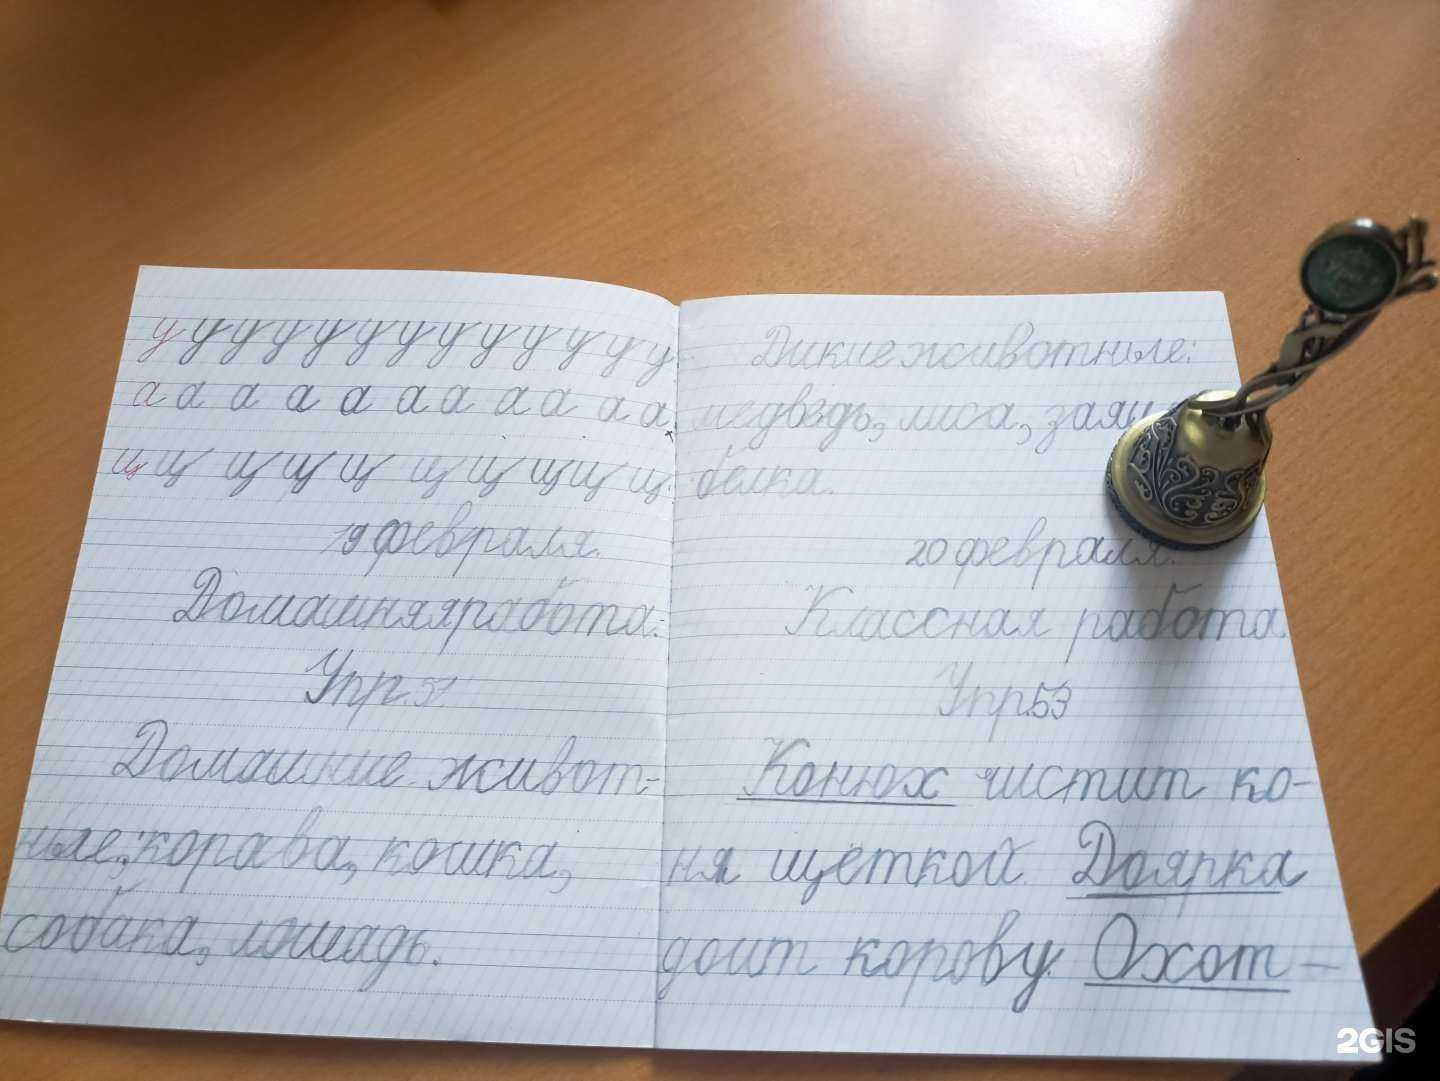 у у у у у у у у у у у у у
а а а а а а а а а а а
щ щ щ щ щ щ щ щ щ щ
19 февраля.
Домашняя работа.
Упр. 51.
Домашние живот-
ные: корова, кошка,
собака, лошадь.
Дикие животные:
медведь, лиса, заяц
белка.
20 февраля.
Классная работа.
Упр. 53
Конюх чистит ко-
ня щёткой. Доярка
доит корову. Охот-
2GIS